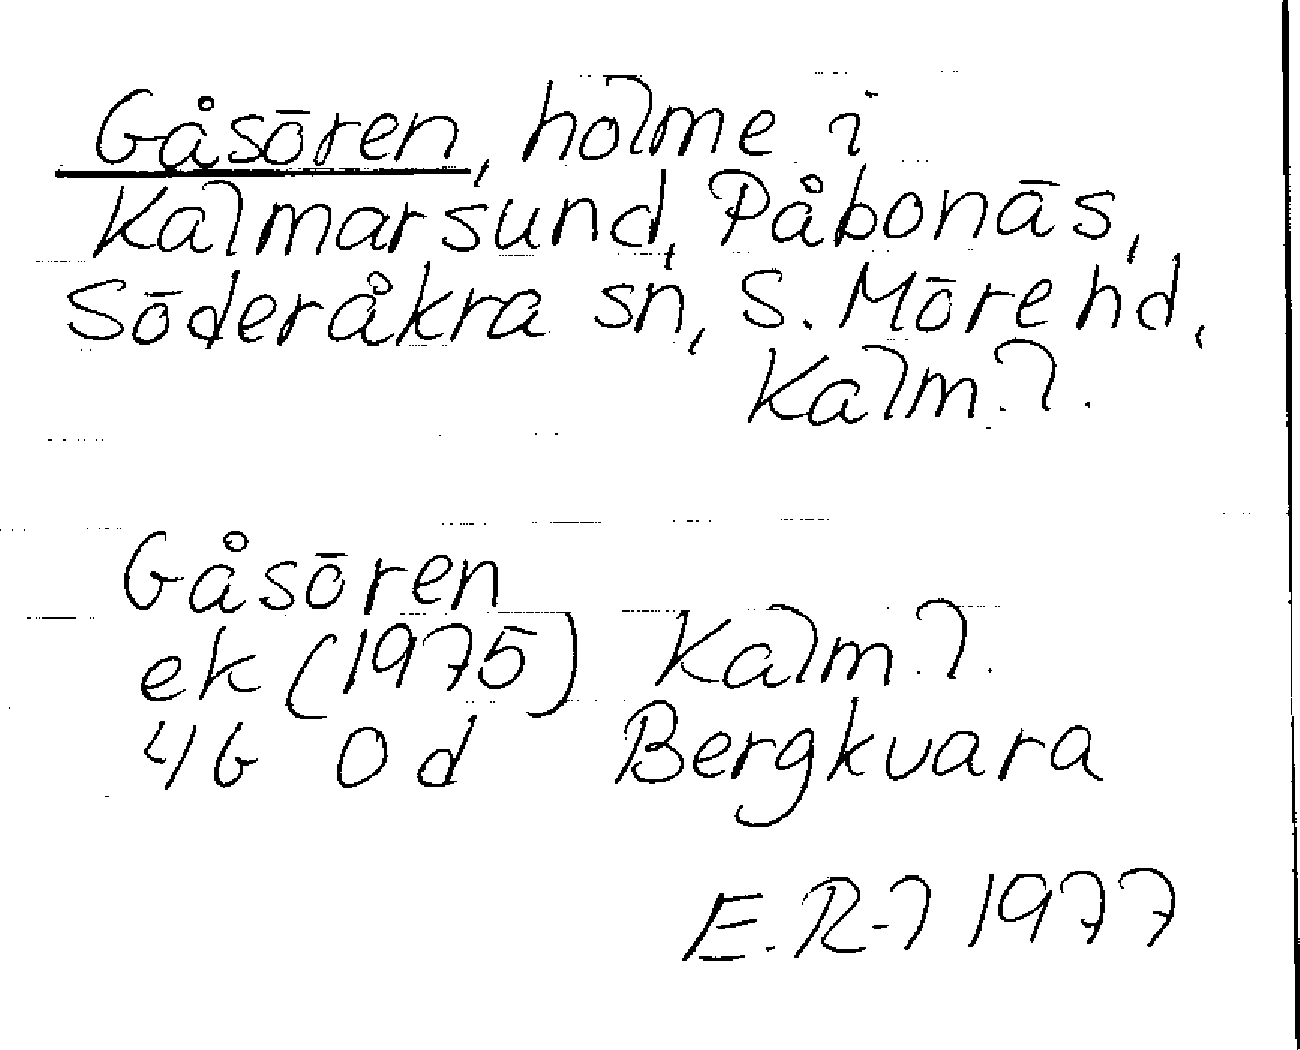 Gåsören, holme i
Kalmarsund, Påbonäs,
Söderåkra sn, S. Möre hd,
Kalm. l.
Gåsören
ek (1975) Kalm. l.
4G 0d Bergkvara
E. R-l 1977